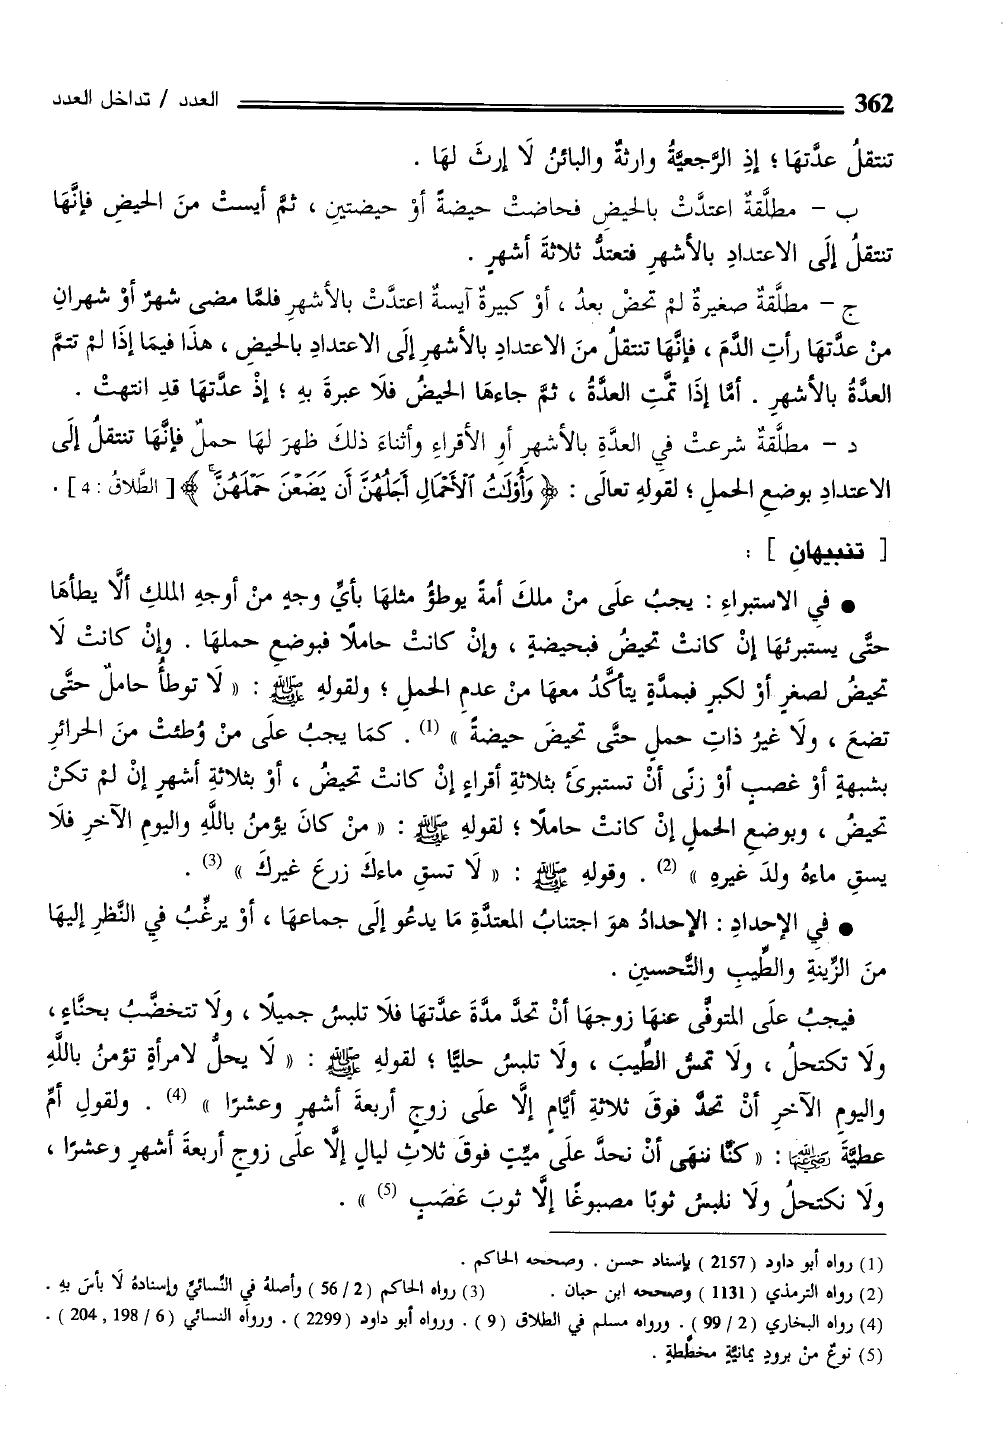 362 العدد / تداخل العدد
تنتقلُ عدَّتهَا ؛ إذِ الرَّجعيَّةُ وارثةٌ والبائنُ لَا إرثَ لهَا .
ب – مطلَّقةٌ اعتدَّتْ بالحيضِ فحاضتْ حيضةً أوْ حيضتينِ ، ثمَّ أيستْ منَ الحيضِ فإنَّهَا
تنتقلُ إلَى الاعتدادِ بالأشهرِ فتعتدُّ ثلاثةَ أشهرٍ .
ج – مطلَّقةٌ صغيرةٌ لمْ تحضْ بعدُ ، أوْ كبيرةٌ آيسةٌ اعتدَّتْ بالأشهرِ فلمَّا مضى شهرٌ أوْ شهرانِ
منْ عدَّتهَا رأتِ الدَّمَ ، فإنَّهَا تنتقلُ منَ الاعتدادِ بالأشهرِ إلَى الاعتدادِ بالحيضِ ، هذَا فيمَا إذَا لمْ تتمَّ
العدَّةُ بالأشهرِ . أمَّا إذَا تمَّتِ العدَّةُ ، ثمَّ جاءهَا الحيضُ فلَا عبرةَ بهِ ؛ إذْ عدَّتهَا قدِ انتهتْ .
د – مطلَّقةٌ شرعتْ في العدَّةِ بالأشهرِ أوِ الأقراءِ وأثناءَ ذلكَ ظهرَ لهَا حملٌ فإنَّهَا تنتقلُ إلَى
الاعتدادِ بوضعِ الحملِ ؛ لقولهِ تعالَى : ﴿ وَأُوْلَٰتُ ٱلْأَحْمَالِ أَجَلُهُنَّ أَن يَضَعْنَ حَمْلَهُنَّ ۚ ﴾ [ الطَّلاقُ : 4 ] .
[ تنبيهانِ ] :
● في الاستبراءِ : يجبُ علَى منْ ملكَ أمةً يوطؤُ مثلهَا بأيِّ وجهٍ منْ أوجهِ الملكِ ألَّا يطأهَا
حتَّى يستبرئهَا إنْ كانتْ تحيضُ فبحيضةٍ ، وإنْ كانتْ حاملًا فبوضعِ حملهَا . وإنْ كانتْ لَا
تحيضُ لصغرٍ أوْ لكبرٍ فبمدَّةٍ يتأكَّدُ معهَا منْ عدمِ الحملِ ؛ ولقولهِ ﷺ : « لَا توطأُ حاملٌ حتَّى
تضعَ ، ولَا غيرُ ذاتِ حملٍ حتَّى تحيضَ حيضةً » (1) . كمَا يجبُ علَى منْ وُطئتْ منَ الحرائرِ
بشبهةٍ أوْ غصبٍ أوْ زنًى أنْ تستبرئَ بثلاثةِ أقراءٍ إنْ كانتْ تحيضُ ، أوْ بثلاثةِ أشهرٍ إنْ لمْ تكنْ
تحيضُ ، وبوضعِ الحملِ إنْ كانتْ حاملًا ؛ لقولهِ ﷺ : « منْ كانَ يؤمنُ باللَّهِ واليومِ الآخرِ فلَا
يسقِ ماءهُ ولدَ غيرهِ » (2) . وقولهِ ﷺ : « لَا تسقِ ماءكَ زرعَ غيركَ » (3) .
● في الإحدادِ : الإحدادُ هوَ اجتنابُ المعتدَّةِ مَا يدعُو إلَى جماعهَا ، أوْ يرغِّبُ في النَّظرِ إليهَا
منَ الزِّينةِ والطِّيبِ والتَّحسينِ .
فيجبُ علَى المتوفَّى عنهَا زوجهَا أنْ تحدَّ مدَّةَ عدَّتهَا فلَا تلبسُ جميلًا ، ولَا تتخضَّبُ بحنَّاءٍ ،
ولَا تكتحلُ ، ولَا تمسُّ الطِّيبَ ، ولَا تلبسُ حليًّا ؛ لقولهِ ﷺ : « لَا يحلُّ لامرأةٍ تؤمنُ باللَّهِ
واليومِ الآخرِ أنْ تحدَّ فوقَ ثلاثةِ أيَّامٍ إلَّا علَى زوجٍ أربعةَ أشهرٍ وعشرًا » (4) . ولقولِ أمِّ
عطيَّةَ رَضِيَ اللَّهُ عَنْهَا : « كنَّا ننهَى أنْ نحدَّ علَى ميِّتٍ فوقَ ثلاثِ ليالٍ إلَّا علَى زوجٍ أربعةَ أشهرٍ وعشرًا ،
ولَا نكتحلُ ولَا نلبسُ ثوبًا مصبوغًا إلَّا ثوبَ عَصَبٍ (5) » .
(1) رواه أبو داود ( 2157 ) بإسناد حسن . وصححه الحاكم .
(2) رواه الترمذي ( 1131 ) وصححه ابن حبان . (3) رواه الحاكم ( 2 / 56 ) وأصلهُ في النَّسائيِّ وإسنادهُ لَا بأسَ بهِ .
(4) رواه البخاري ( 2 / 99 ) . ورواه مسلم في الطلاق ( 9 ) . ورواه أبو داود ( 2299 ) . ورواه النسائي ( 6 / 198 , 204 ) .
(5) نوعٌ منْ برودٍ يمانيَّةٍ مخطَّطةٍ .